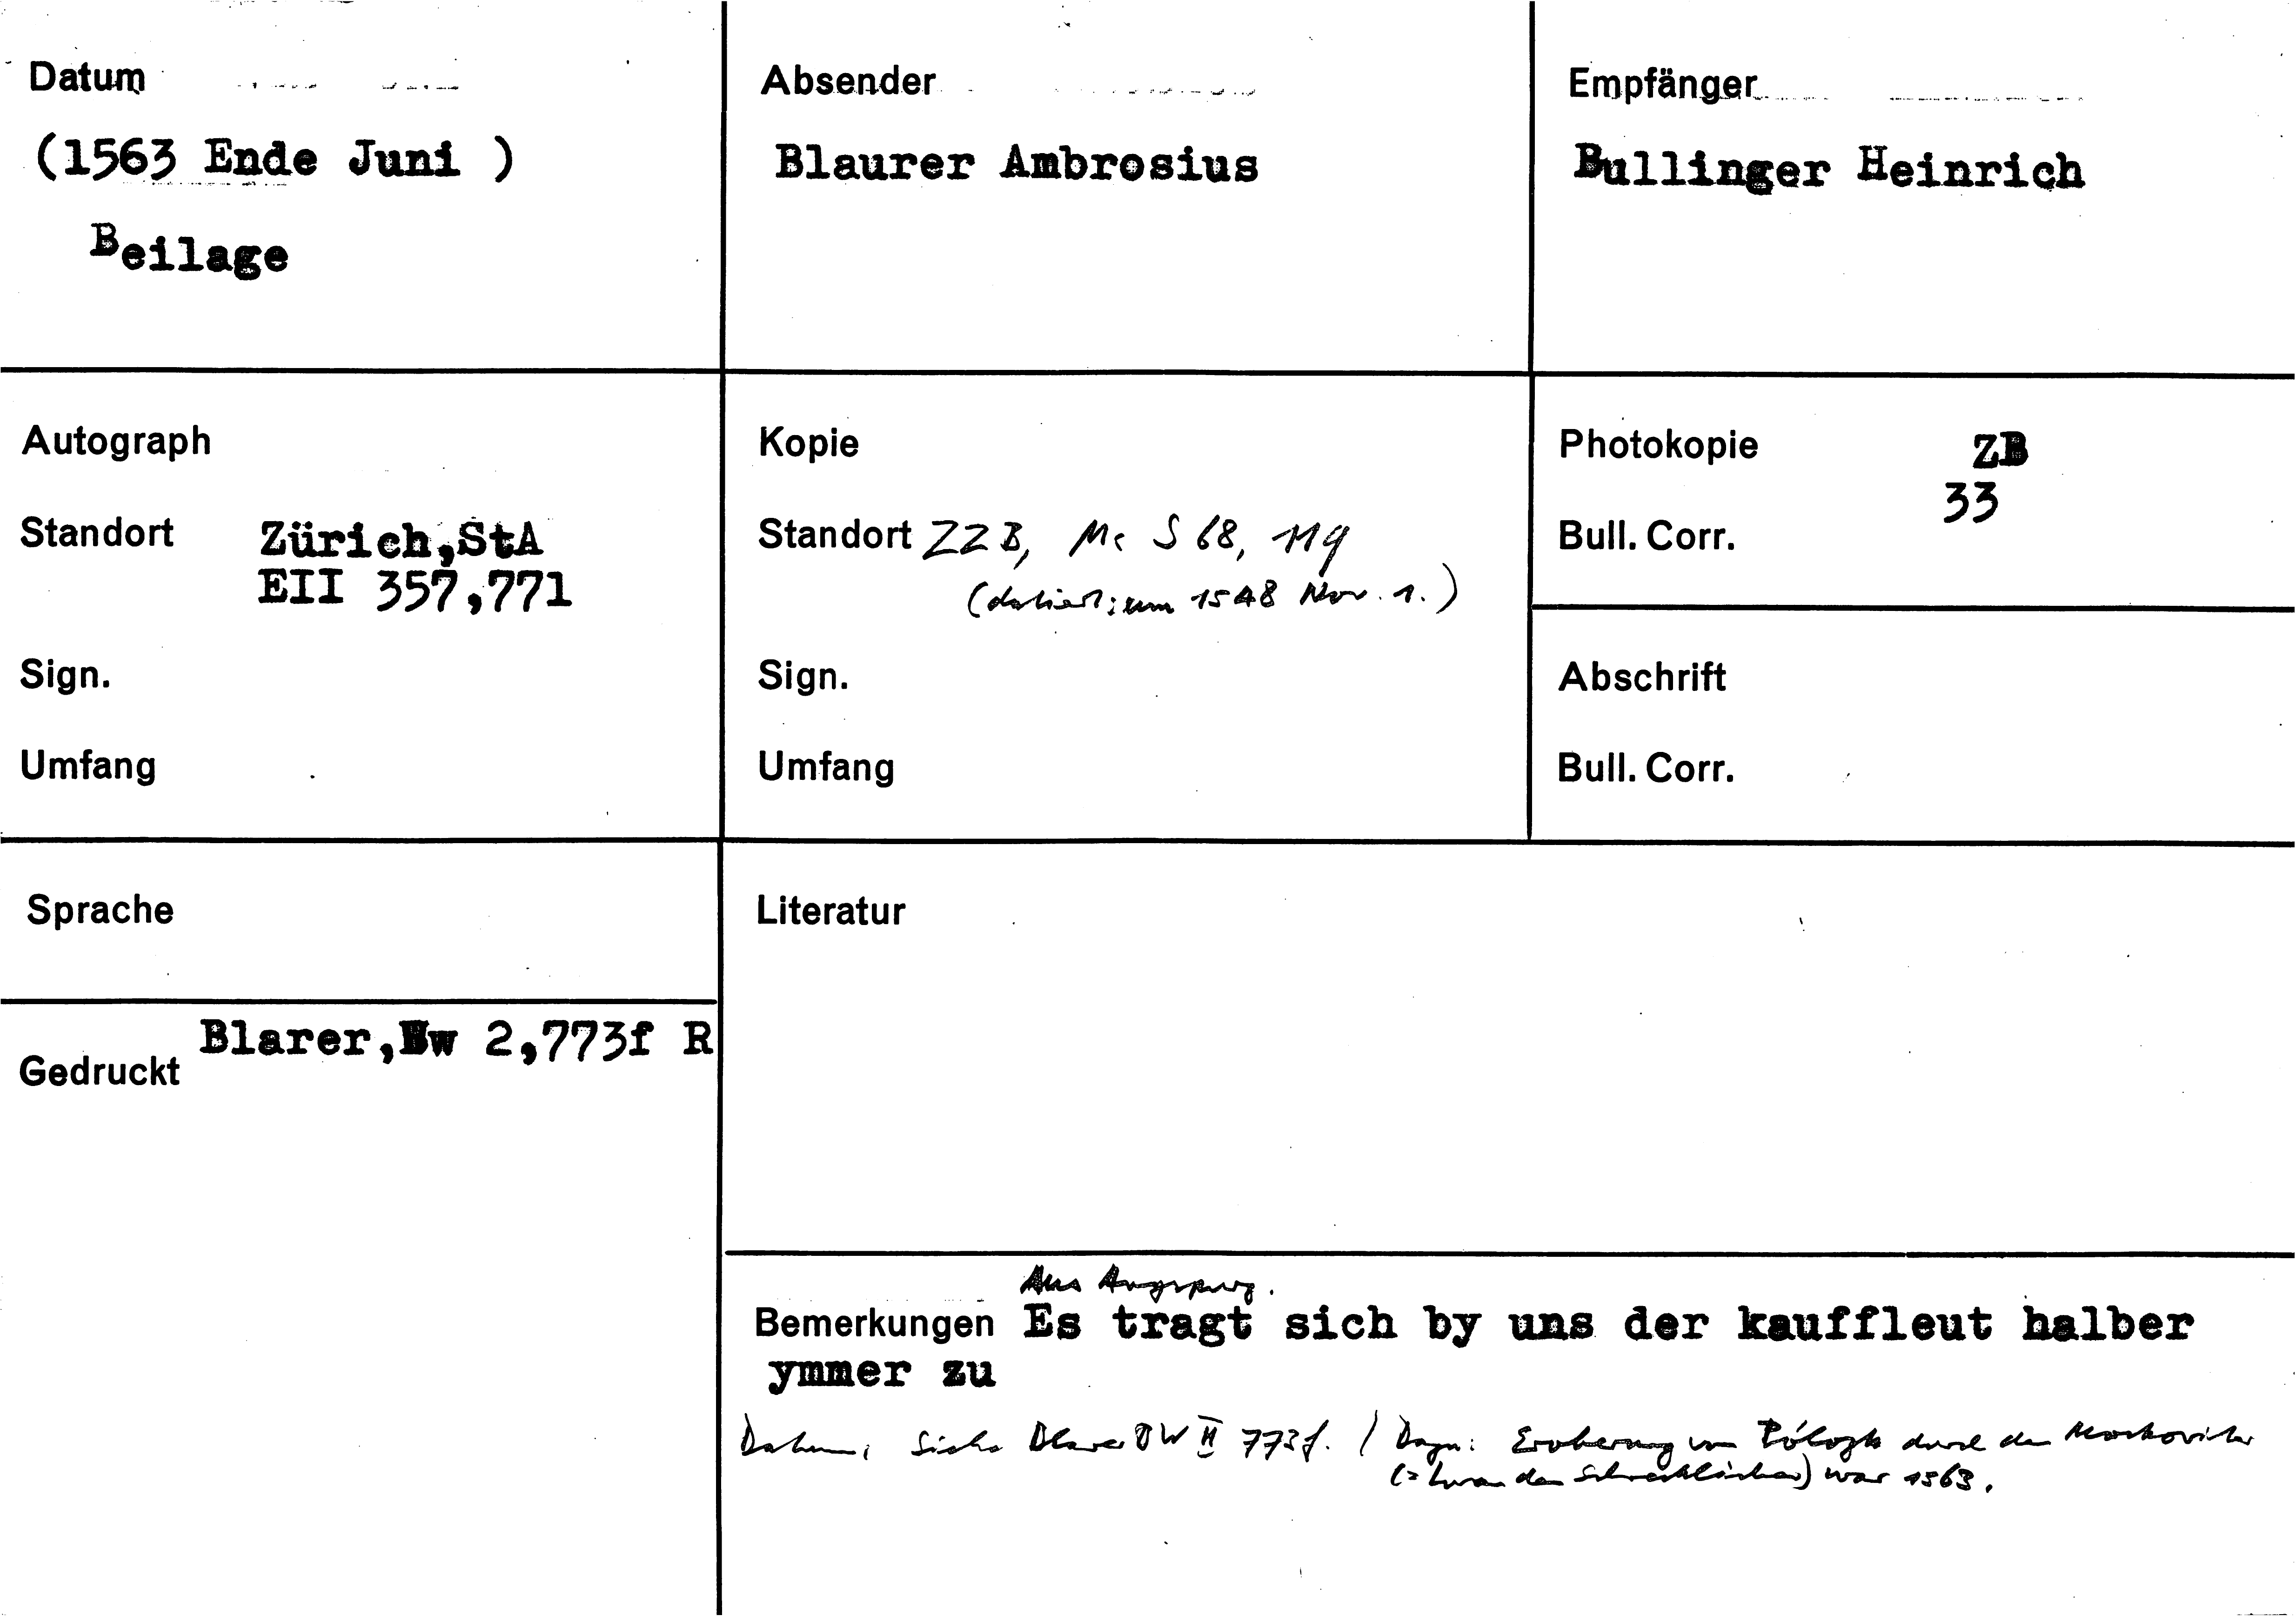 Datum
(1563 Ende Juni )
Beilage
Absender
Blaurer Ambrosius
Empfänger
Bullinger Heinrich
Autograph
Standort Zürich,StA
EII 357,771
Sign.
Umfang
Kopie
Standort ZZB, Ms S 68, 119
(datiert: um 1548 Nov. 1.)
Sign.
Umfang
Photokopie ZB
33
Bull. Corr.
Abschrift
Bull. Corr.
Sprache
Gedruckt Blarer,Bw 2,773f R
Literatur
Aus Augspurg.
Bemerkungen Es tragt sich by uns der kauffleut halber
ymmer zu
Datum: Siehe Blarer BW II 773f. / Dazu: Eroberung von Pólozk durch den Moskoviter
(= Iwan den Schrecklichen) war 1563.